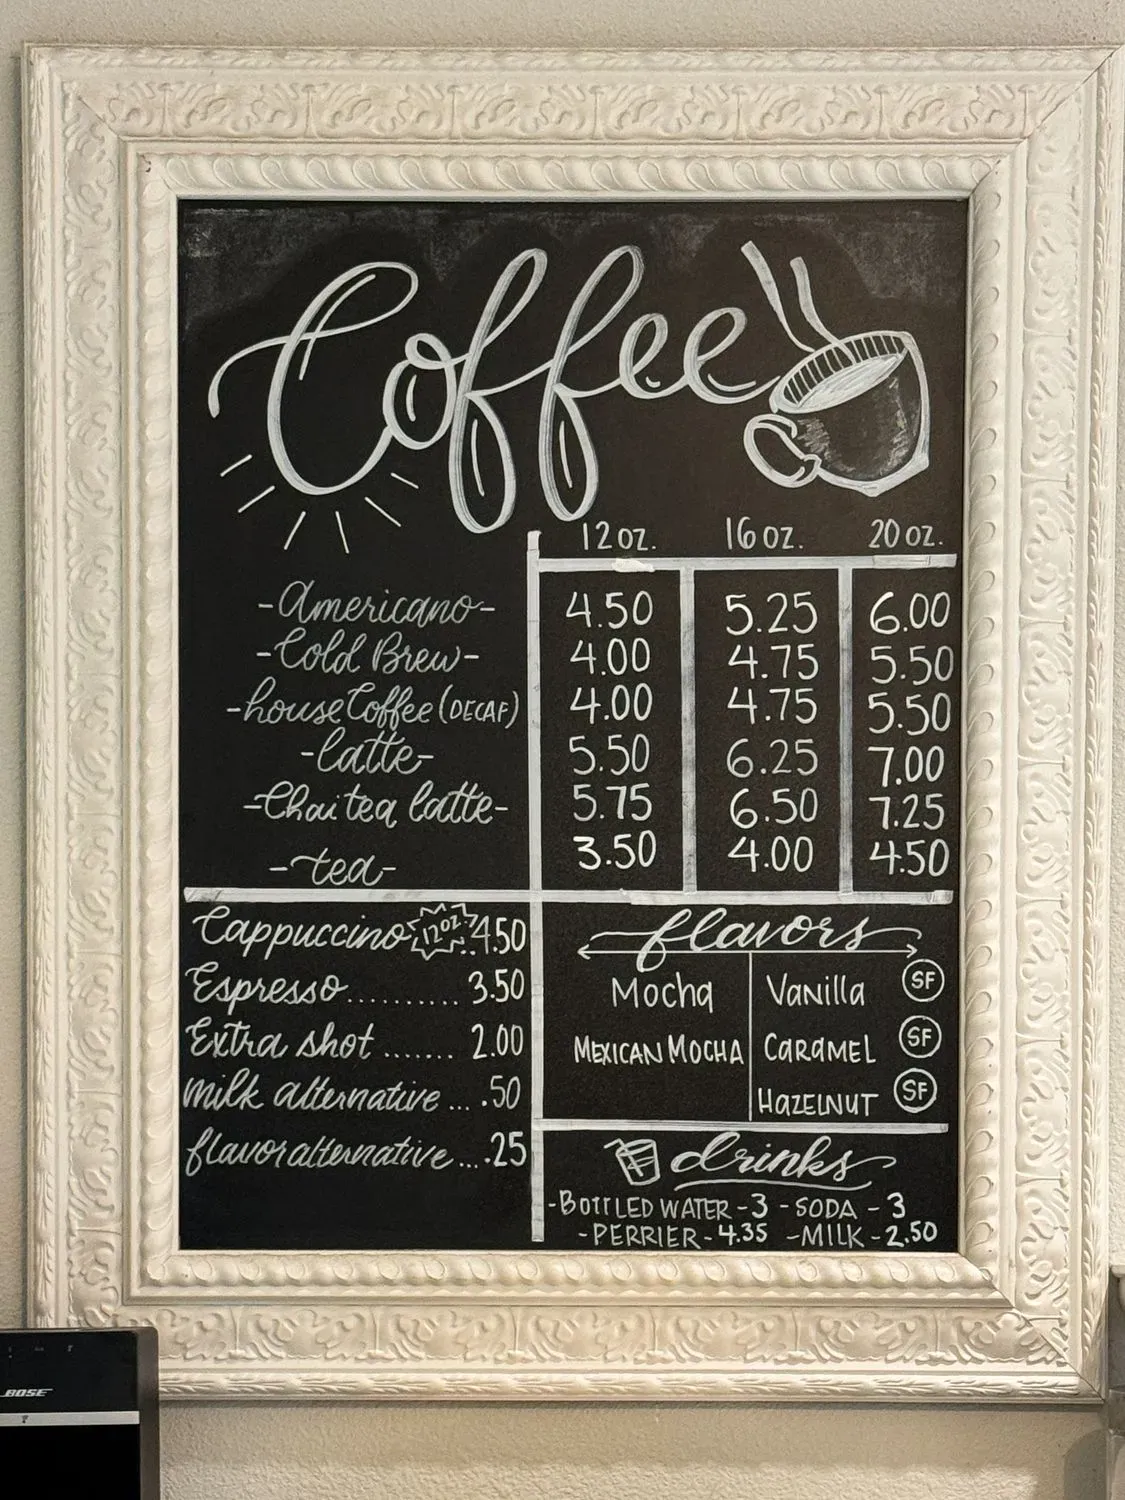 Coffee
12 oz. 16 oz. 20 oz.
-Americano- 4.50 5.25 6.00
-Cold Brew- 4.00 4.75 5.50
-house Coffee (DECAF) 4.00 4.75 5.50
-latte- 5.50 6.25 7.00
-Chai tea latte- 5.75 6.50 7.25
-tea- 3.50 4.00 4.50
Cappuccino 12oz. ..4.50
Espresso.......... 3.50
Extra shot ....... 2.00
milk alternative ... .50
flavor alternative ... .25
flavors
Mocha
MEXICAN MOCHA
Vanilla SF
CARAMEL SF
HAZELNUT SF
drinks
-BOTTLED WATER - 3 - SODA - 3
-PERRIER - 4.35 -MILK - 2.50
BOSE